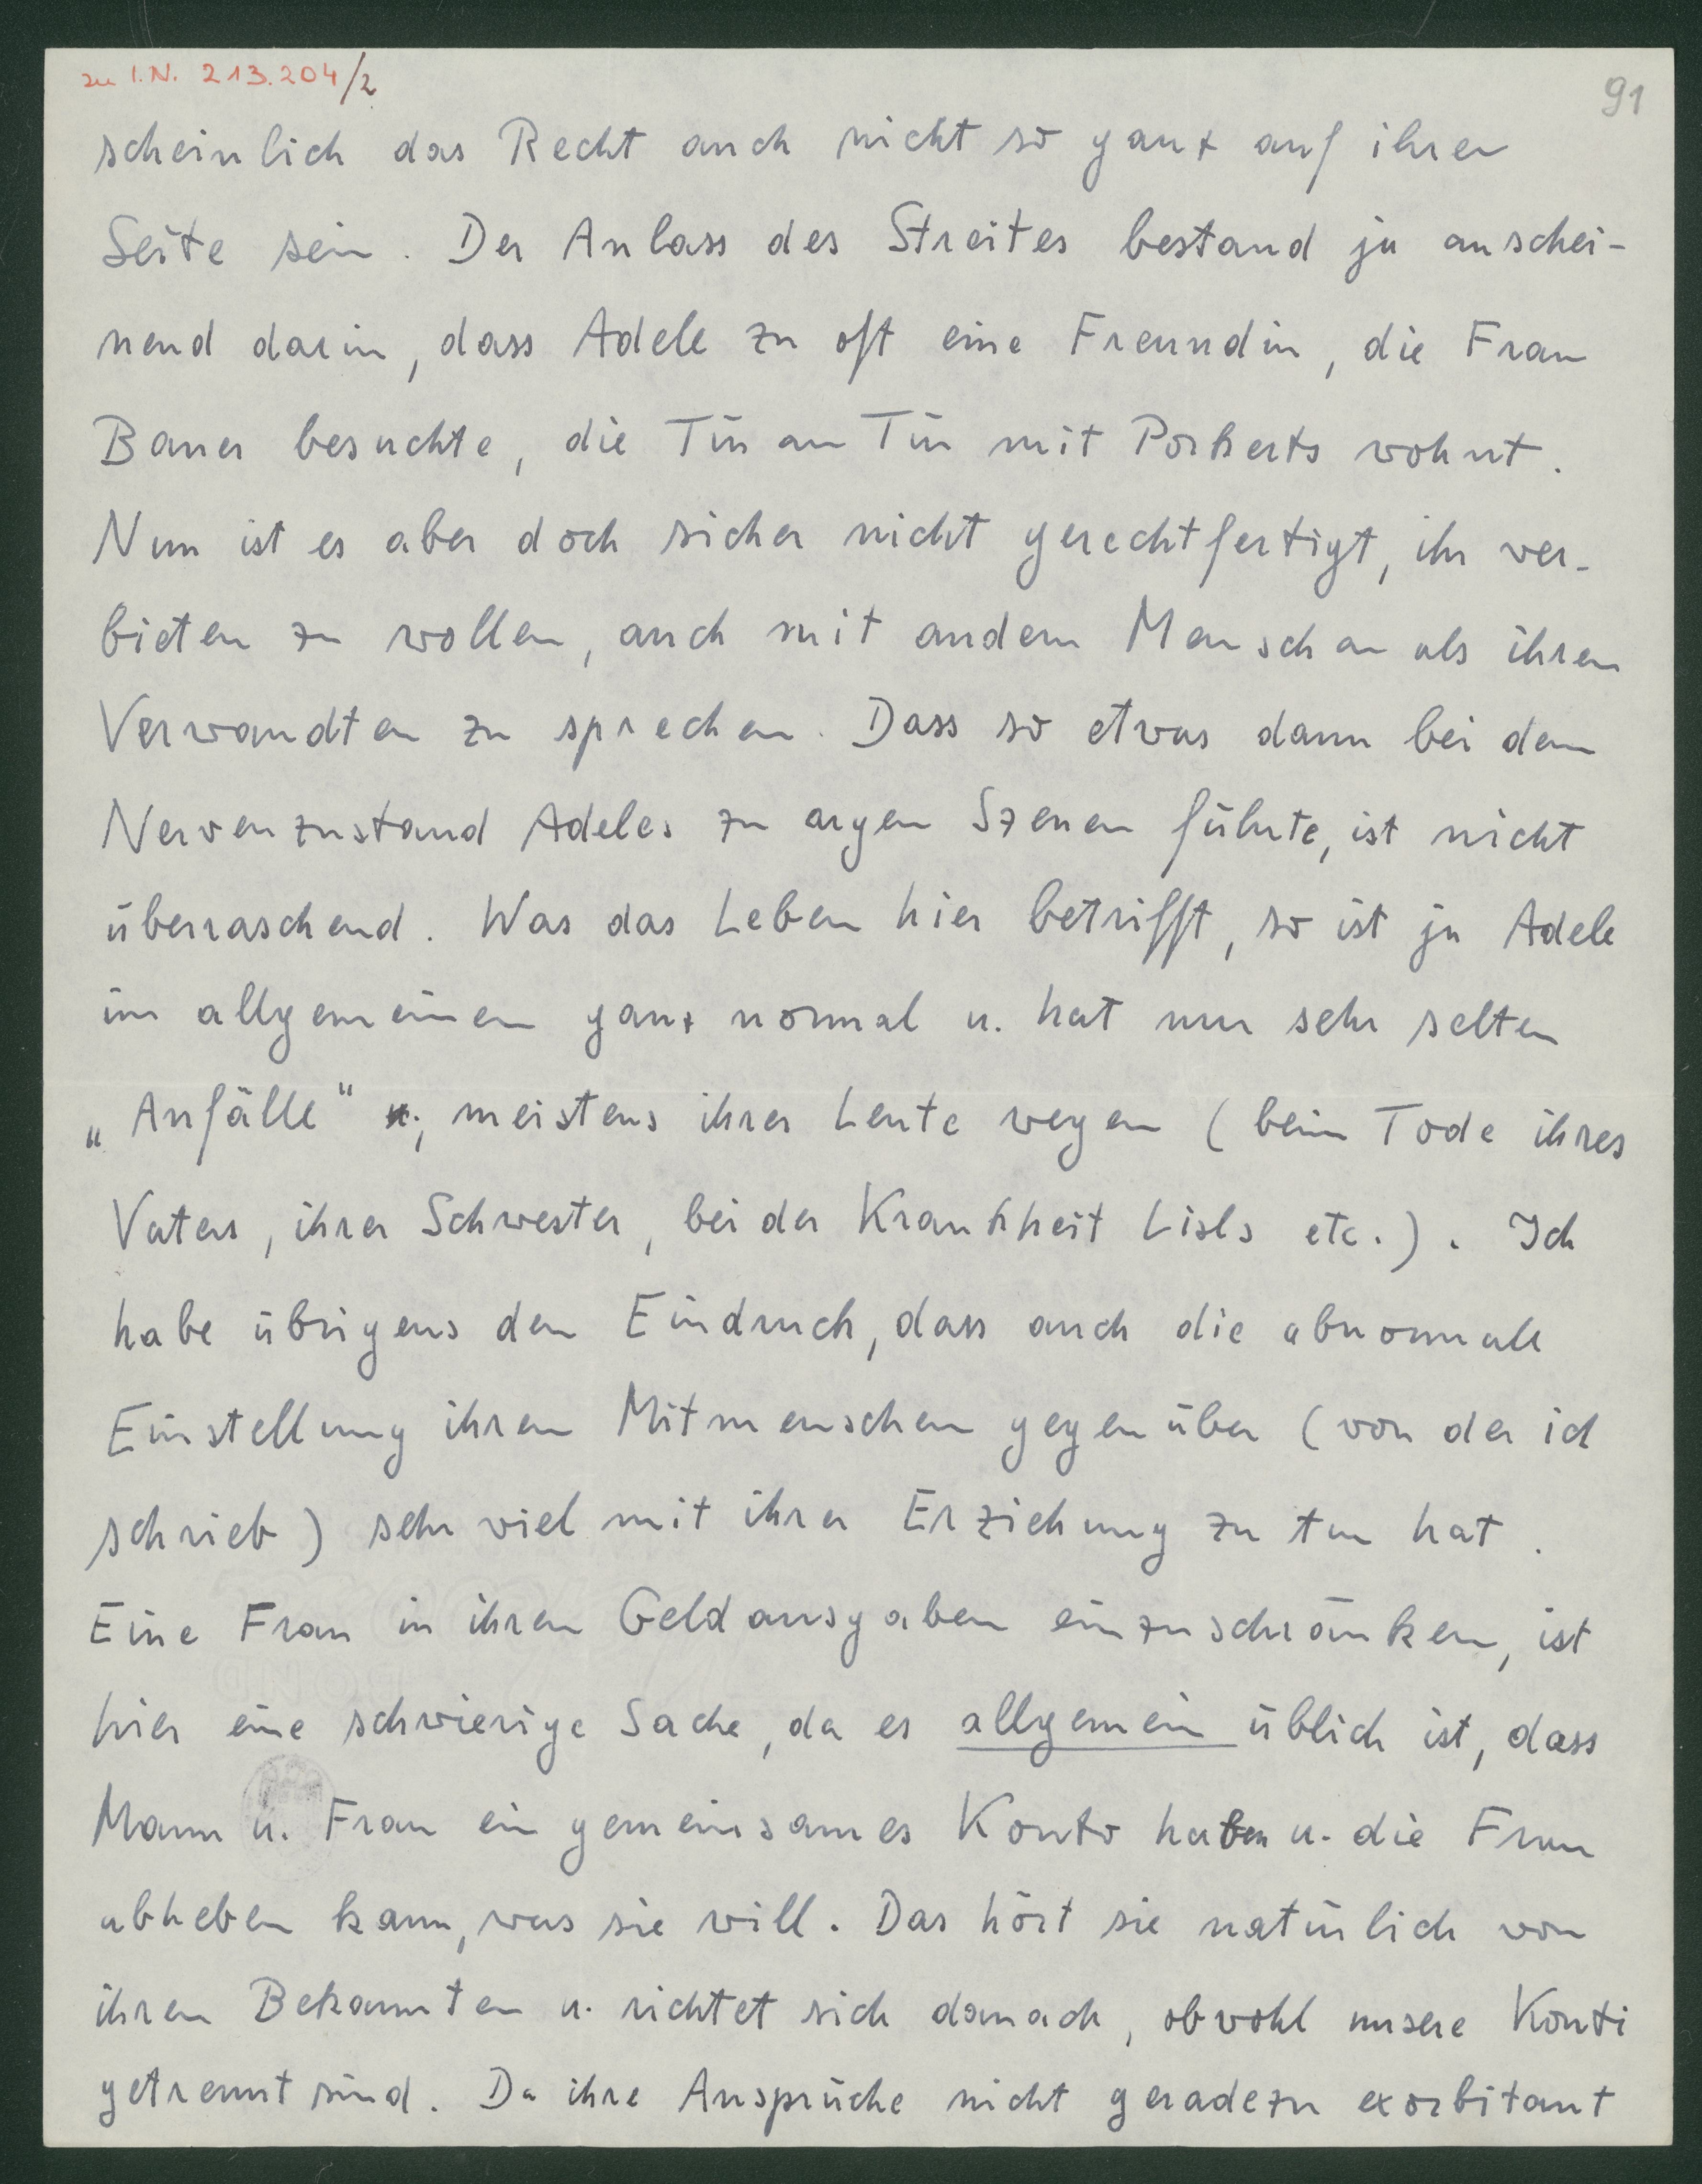 zu I.N. 213.204/2
91
scheinlich das Recht auch nicht so ganz auf ihrer
Seite sein. Der Anlass des Streites bestand ja anschei-
nend darin, dass Adele zu oft eine Freundin, die Frau
Bauer besuchte, die Tür an Tür mit Porkerts wohnt.
Nun ist es aber doch sicher nicht gerechtfertigt, ihr ver-
bieten zu wollen, auch mit andern Menschen als ihren
Verwandten zu sprechen. Dass so etwas dann bei dem
Nervenzustand Adeles zu argen Szenen führte, ist nicht
überraschend. Was das Leben hier betrifft, so ist ja Adele
im allgemeinen ganz normal u. hat nur sehr selten
„Anfälle" u., meistens ihrer Leute wegen (beim Tode ihres
Vaters, ihrer Schwester, bei der Krankheit Lisls etc.). Ich
habe übrigens den Eindruck, dass auch die abnormale
Einstellung ihren Mitmenschen gegenüber (von der ich
schrieb) sehr viel mit ihrer Erziehung zu tun hat.
Eine Frau in ihren Geldausgaben einzuschränken, ist
hier eine schwierige Sache, da es allgemein üblich ist, dass
Mann u. Frau ein gemeinsames Konto haben u. die Frau
abheben kann, was sie will. Das hört sie natürlich von
ihren Bekannten u. richtet sich danach, obwohl unsere Konti
getrennt sind. Da ihre Ansprüche nicht geradezu exorbitant